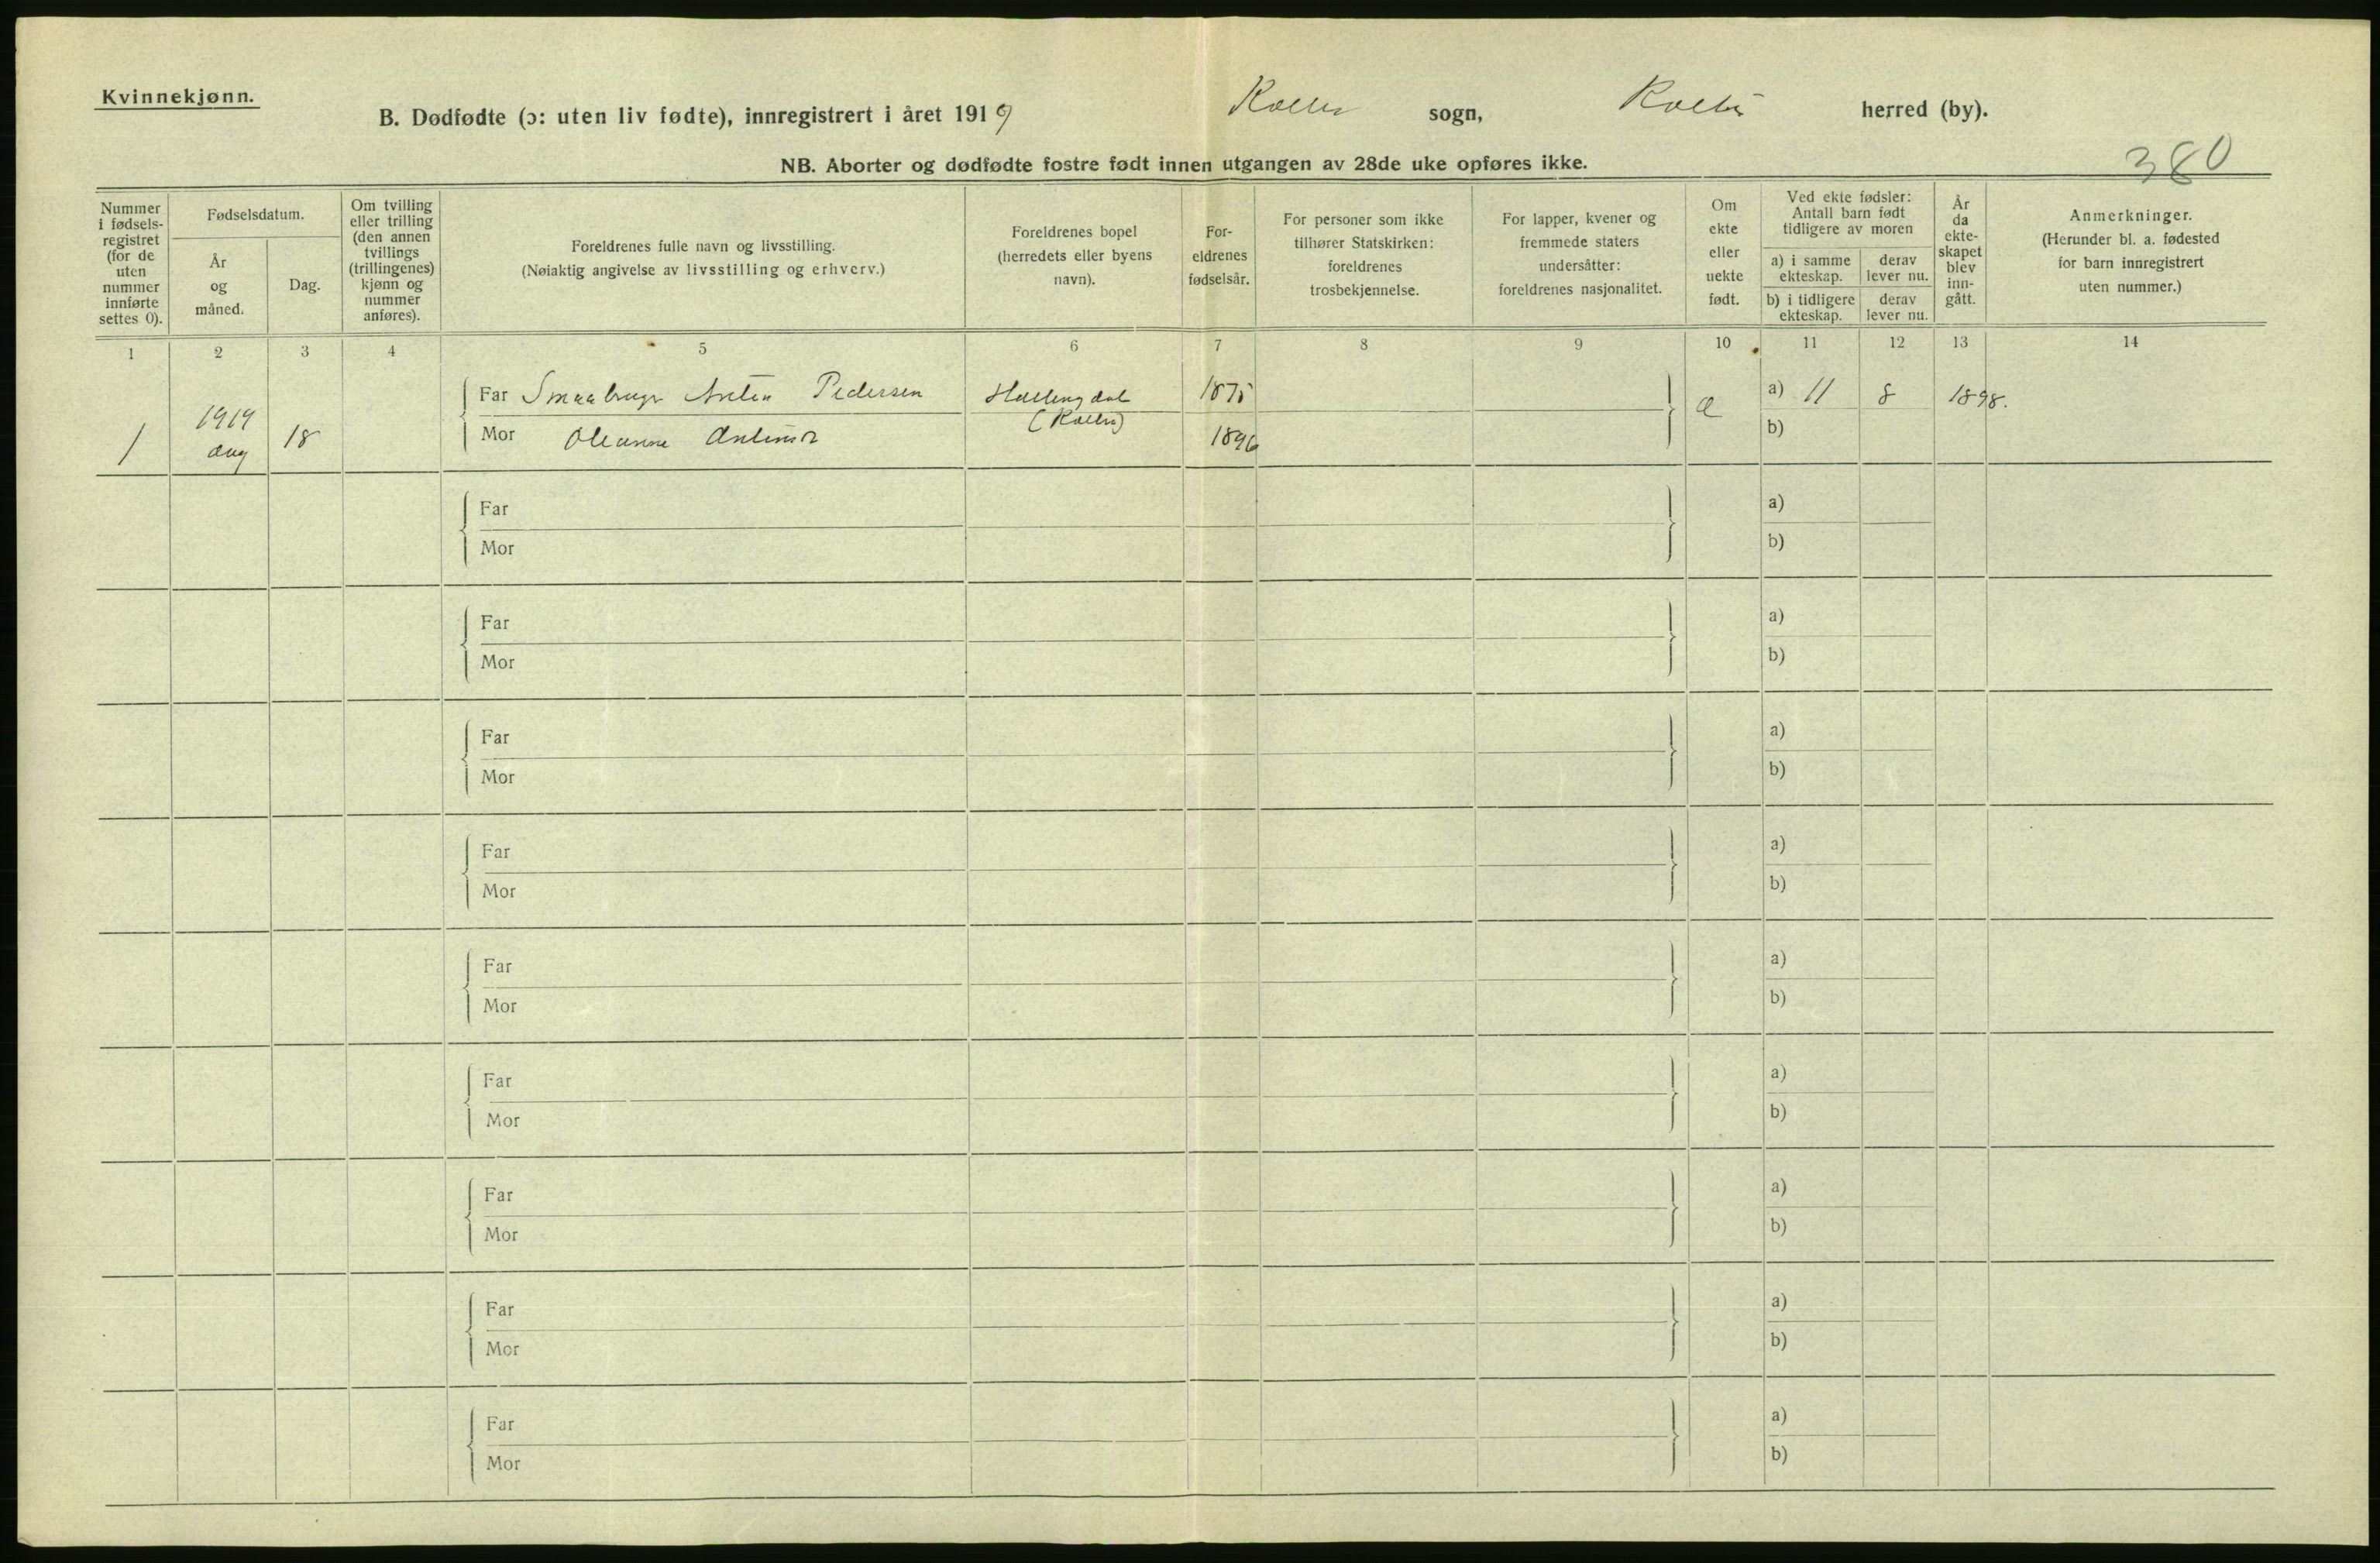 Kvinnekjønn.
B. Dødfødte (ɔ: uten liv fødte), innregistrert i året 1919 sogn, herred (by).
NB. Aborter og dødfødte fostre født innen utgangen av 28de uke opføres ikke.
380
Nummer
i fødsels-
registret
(for de
uten
nummer
innførte
settes 0).
Fødselsdatum.
År
og
måned.
Dag.
Om tvilling
eller trilling
(den annen
tvillings
(trillingenes)
kjønn og
nummer
anføres).
Foreldrenes fulle navn og livsstilling.
(Nøiaktig angivelse av livsstilling og erhverv.)
Foreldrenes bopel
(herredets eller byens
navn).
For-
eldrenes
fødselsår.
For personer som ikke
tilhører Statskirken:
foreldrenes
trosbekjennelse.
For lapper, kvener og
fremmede staters
undersåtter:
foreldrenes nasjonalitet.
Om
ekte
eller
uekte
født.
Ved ekte fødsler:
Antall barn født
tidligere av moren
a) i samme
ekteskap.
derav
lever nu.
b) i tidligere
ekteskap.
derav
lever nu.
År
da
ekte-
skapet
blev
inn-
gått.
Anmerkninger.
(Herunder bl. a. fødested
for barn innregistrert
uten nummer.)
1 2 3 4 5 6 7 8 9 10 11 12 13 14
Far Pedersen 1875 a) 11 8 1898.
1 1919 aug 18
Mor 1896 b)
Far a)
Mor b)
Far a)
Mor b)
Far a)
Mor b)
Far a)
Mor b)
Far a)
Mor b)
Far a)
Mor b)
Far a)
Mor b)
Far a)
Mor b)
Far a)
Mor b)